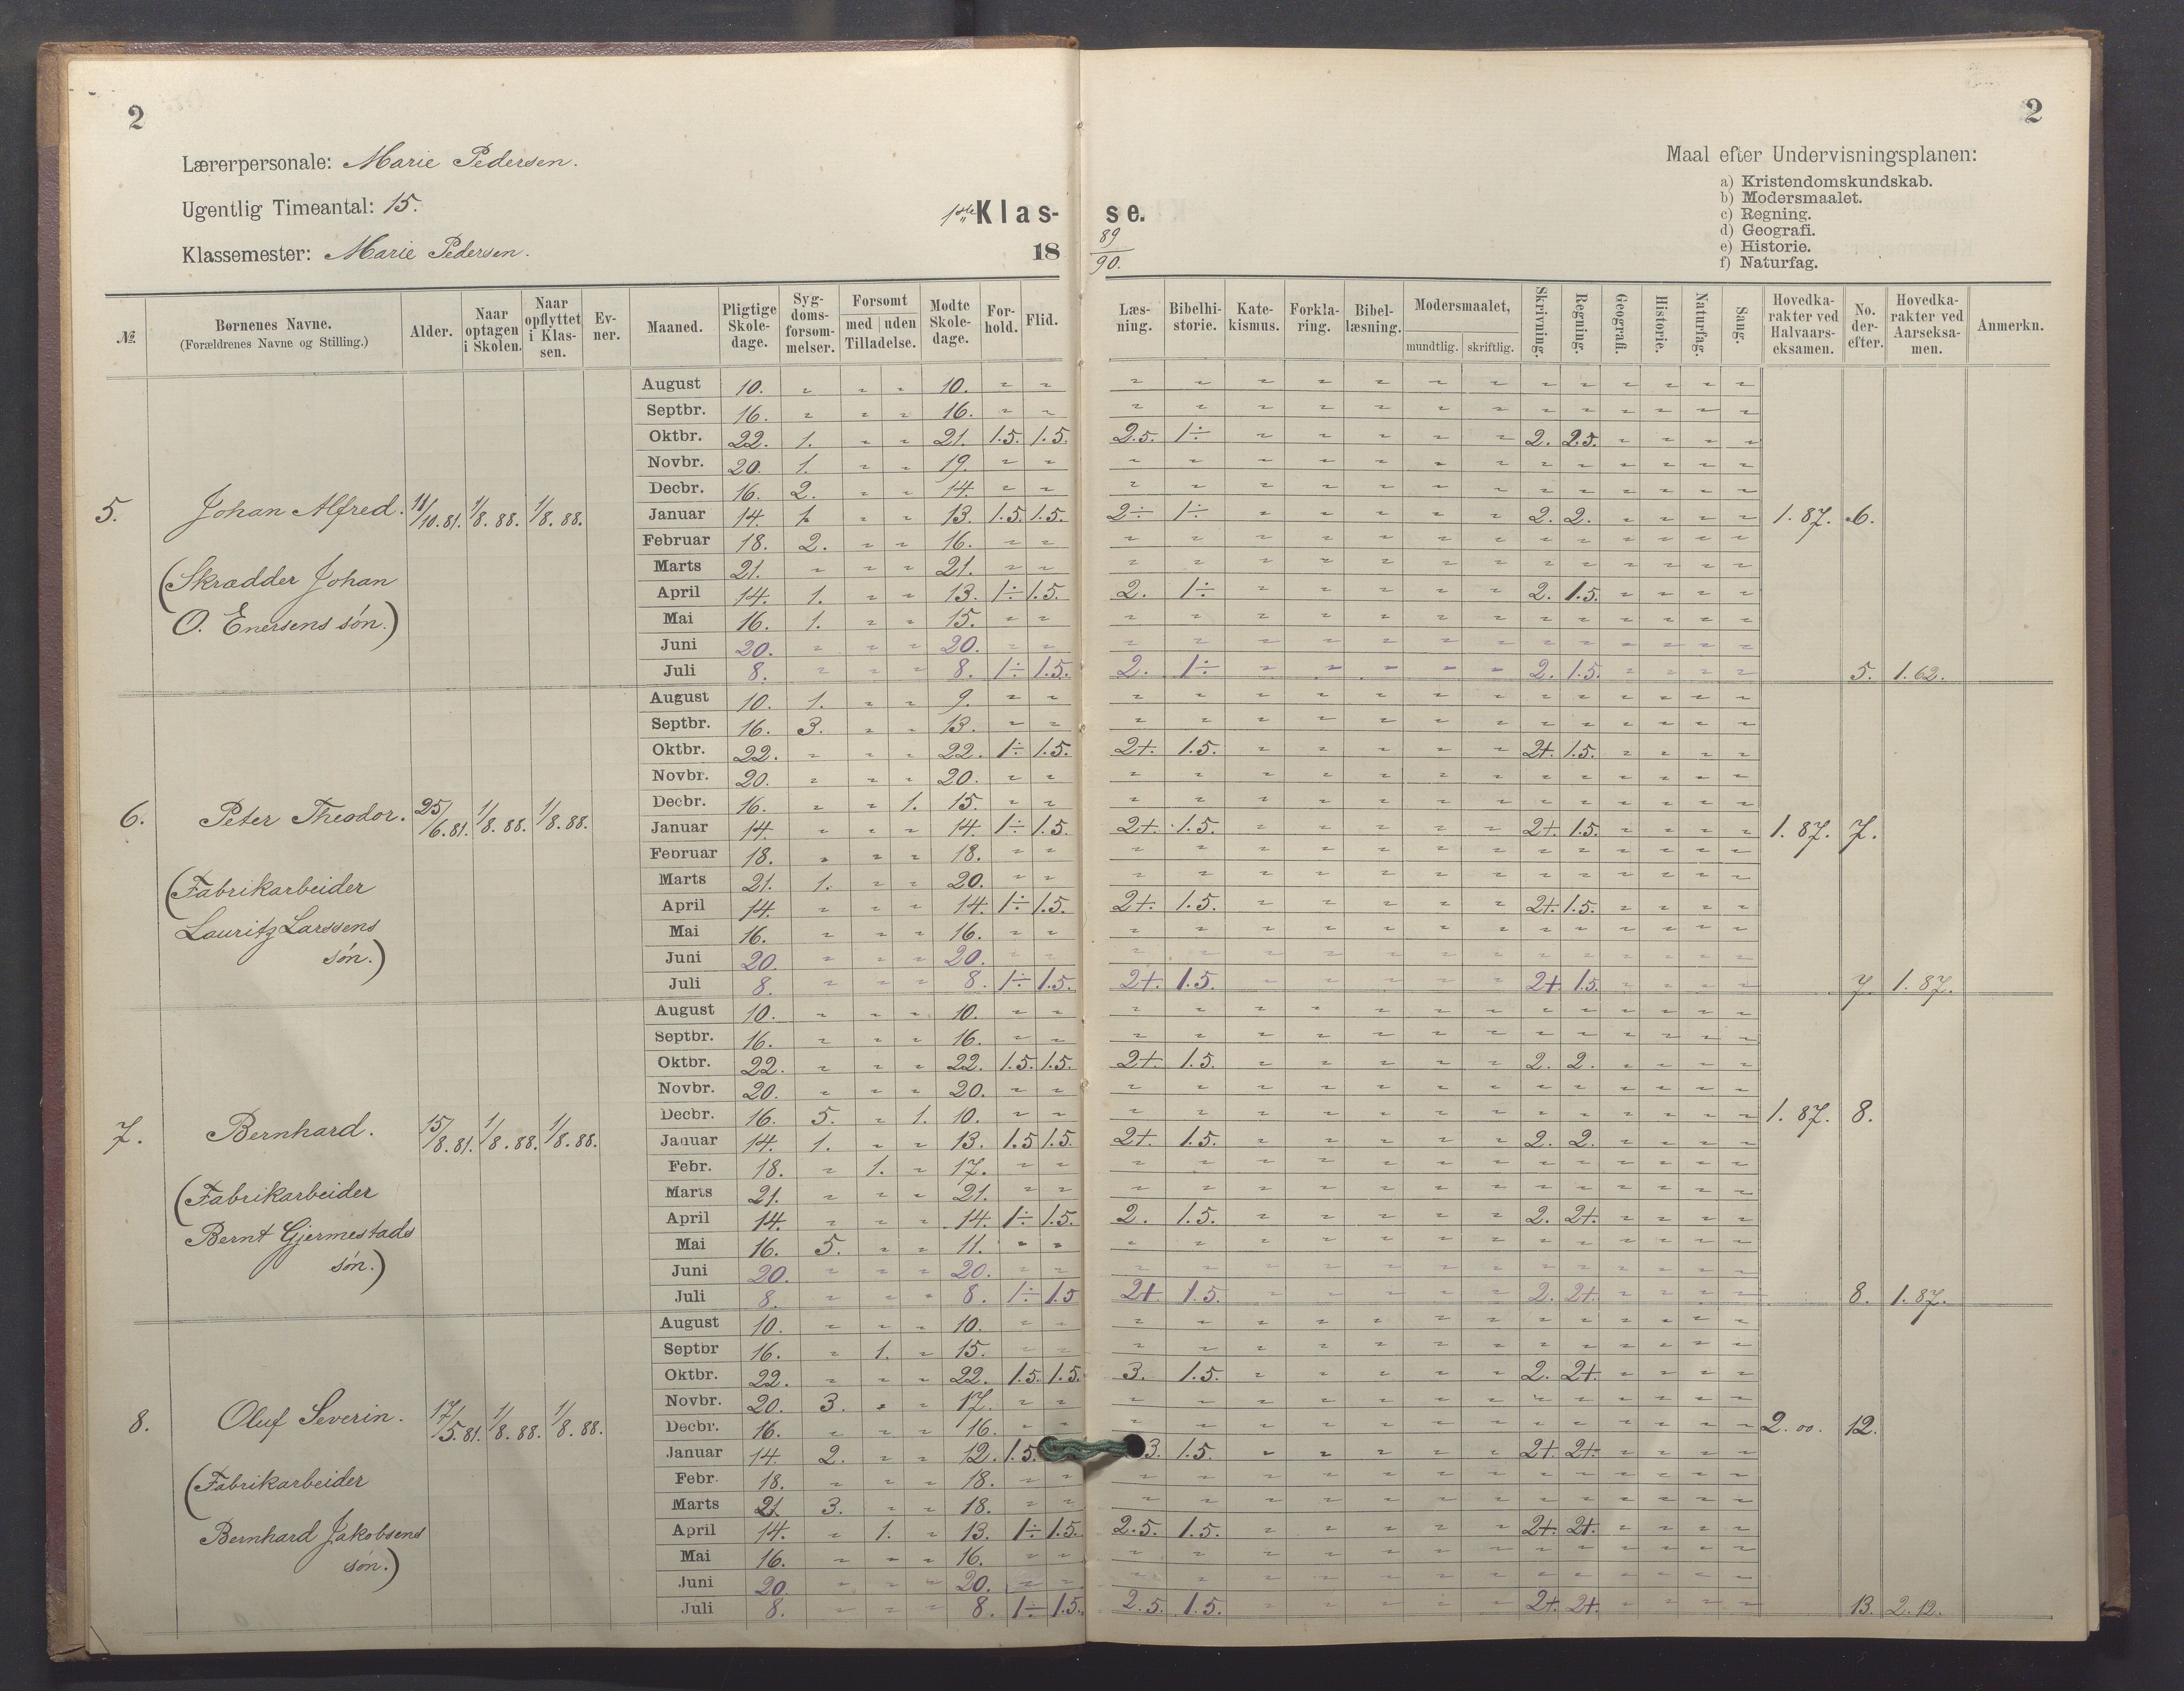 2
2
Lærerpersonale: Marie Pedersen.
Ugentlig Timeantal: 15.
Klassemester: Marie Pedersen.
1ste Klas-se.
18 89/90.
Maal efter Undervisningsplanen:
a) Kristendomskundskab.
b) Modersmaalet.
c) Regning.
d) Geografi.
e) Historie.
f) Naturfag.
№ | Børnenes Navne. (Forældrenes Navne og Stilling.) | Alder. | Naar optagen i Skolen. | Naar opflyttet i Klassen. | Evner. | Maaned. | Pligtige Skoledage. | Sygdomsforsømmelser. | Forsømt med | uden Tilladelse. | Mødte Skoledage. | Forhold. | Flid. | Læsning. | Bibelhistorie. | Katekismus. | Forklaring. | Bibellæsning. | Modersmaalet, mundtlig. | skriftlig. | Skrivning. | Regning. | Geografi. | Historie. | Naturfag. | Sang. | Hovedkarakter ved Halvaarseksamen. | No. derefter. | Hovedkarakter ved Aarseksamen. | Anmerkn.
5. Johan Alfred. 11/10.81. 1/8.88. 1/8.88.
(Skrædder Johan
O. Enersens søn.)
August 10. " " " 10. " " " " " " " " " " " " " " "
Septbr. 16. " " " 16. " " " " " " " " " " " " " " "
Oktbr. 22. 1. " " 21. 1.5. 1.5. 2.5. 1÷ " " " " " 2. 2.5. " " " "
Novbr. 20. 1. " " 19. " " " " " " " " " " " " " " "
Decbr. 16. 2. " " 14. " " " " " " " " " " " " " " "
Januar 14. 1. " " 13. 1.5. 1.5. 2÷ 1÷ " " " " " 2. 2. " " " " 1.87. 6.
Februar 18. 2. " " 16. " " " " " " " " " " " " " " "
Marts 21. " " " 21. " " " " " " " " " " " " " " "
April 14. 1. " " 13. 1÷ 1.5. 2. 1÷ " " " " " 2. 1.5. " " " "
Mai 16. 1. " " 15. " " " " " " " " " " " " " " "
Juni 20. " " " 20. " " " " " " " " " " " " " " "
Juli 8. " " " 8. 1÷ 1.5. 2. 1÷ " " " " " 2. 1.5. " " " " 5. 1.62.
6. Peter Theodor. 25/6.81. 1/8.88. 1/8.88.
(Fabrikarbeider
Lauritz Larssens
søn.)
August 10. 1. " " 9. " " " " " " " " " " " " " " "
Septbr. 16. 3. " " 13. " " " " " " " " " " " " " " "
Oktbr. 22. " " " 22. 1÷ 1.5. 2+. 1.5. " " " " " 2+. 1.5. " " " "
Novbr. 20. " " " 20. " " " " " " " " " " " " " " "
Decbr. 16. " " 1. 15. " " " " " " " " " " " " " " "
Januar 14. " " " 14. 1÷ 1.5. 2+. 1.5. " " " " " 2+. 1.5. " " " " 1.87. 7.
Februar 18. " " " 18. " " " " " " " " " " " " " " "
Marts 21. 1. " " 20. " " " " " " " " " " " " " " "
April 14. " " " 14. 1÷ 1.5. 2+. 1.5. " " " " " 2+. 1.5. " " " "
Mai 16. " " " 16. " " " " " " " " " " " " " " "
Juni 20. " " " 20. " " " " " " " " " " " " " " "
Juli 8. " " " 8. 1÷ 1.5. 2+. 1.5. " " " " " 2+ 1.5. " " " " 7. 1.87.
7. Bernhard. 15/8.81. 1/8.88. 1/8.88.
(Fabrikarbeider
Bernt Gjermestads
søn.)
August 10. " " " 10. " " " " " " " " " " " " " " "
Septbr. 16. " " " 16. " " " " " " " " " " " " " " "
Oktbr. 22. " " " 22. 1.5. 1.5. 2+. 1.5. " " " " " 2. 2. " " " "
Novbr. 20. " " " 20. " " " " " " " " " " " " " " "
Decbr. 16. 5. " 1. 10. " " " " " " " " " " " " " " " 1.87. 8.
Januar 14. 1. " " 13. 1.5 1.5. 2+. 1.5. " " " " " 2. 2. " " " "
Febr. 18. " 1. " 17. " " " " " " " " " " " " " " "
Marts 21. " " " 21. " " " " " " " " " " " " " " "
April 14. " " " 14. 1÷ 1.5. 2. 1.5. " " " " " 2. 2+. " " " "
Mai 16. 5. " " 11. " " " " " " " " " " " " " " "
Juni 20. " " " 20. " " " " " " " " " " " " " " "
Juli 8. " " " 8. 1÷ 1.5 2+. 1.5. " " " " " 2. 2+. " " " " 8. 1.87.
8. Oluf Severin. 17/5.81. 1/8.88. 1/8.88.
(Fabrikarbeider
Bernhard Jakobsens
søn.)
August 10. " " " 10. " " " " " " " " " " " " " " "
Septbr 16. " 1. " 15. " " " " " " " " " " " " " " "
Oktbr. 22. " " " 22. 1.5. 1.5. 3. 1.5. " " " " " 2. 2+. " " " "
Novbr. 20. 3. " " 17. " " " " " " " " " " " " " " "
Decbr. 16. " " " 16. " " " " " " " " " " " " " " " 2.00. 12.
Januar 14. 2. " " 12. 1.5. 3. 1.5. " " " " " 2+. 2+. " " " "
Febr. 18. " " " 18. " " " " " " " " " " " " " " "
Marts 21 3. " " 18. " " " " " " " " " " " " " " "
April 14. " 1. " 13. 1÷ 1.5. 2.5. 1.5. " " " " " 2+. 2+. " " " "
Mai 16. " " " 16. " " " " " " " " " " " " " " "
Juni 20. " " " 20. " " " " " " " " " " " " " " "
Juli 8. " " " 8. 1÷ 1.5. 2.5. 1.5. " " " " " 2+. 2+. " " " " 13. 2.12.